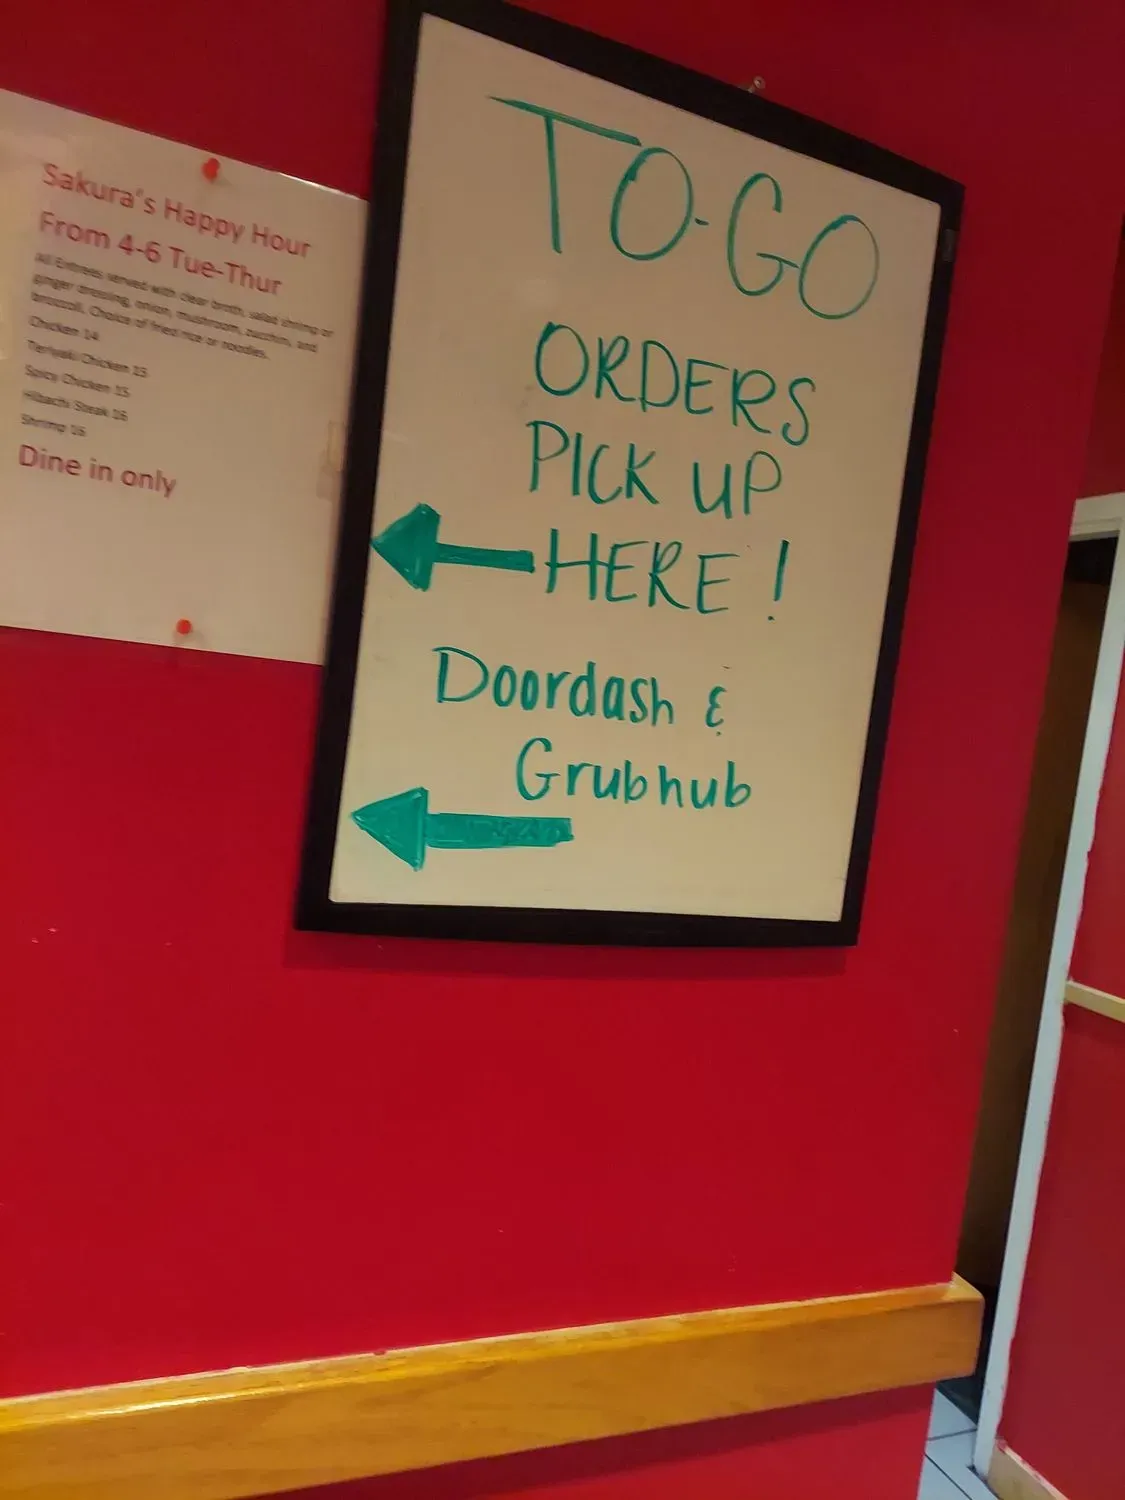 Sakura's Happy Hour
From 4-6 Tue-Thur
All Entrees served with clear broth, salad shrimp or
ginger dressing, onion, mushroom, zucchini, and
broccoli. Choice of fried rice or noodles.
Chicken 14
Teriyaki Chicken 15
Spicy Chicken 15
Hibachi Steak 16
Shrimp 16
Dine in only
TO-GO
ORDERS
PICK UP
HERE!
Doordash &
Grubhub